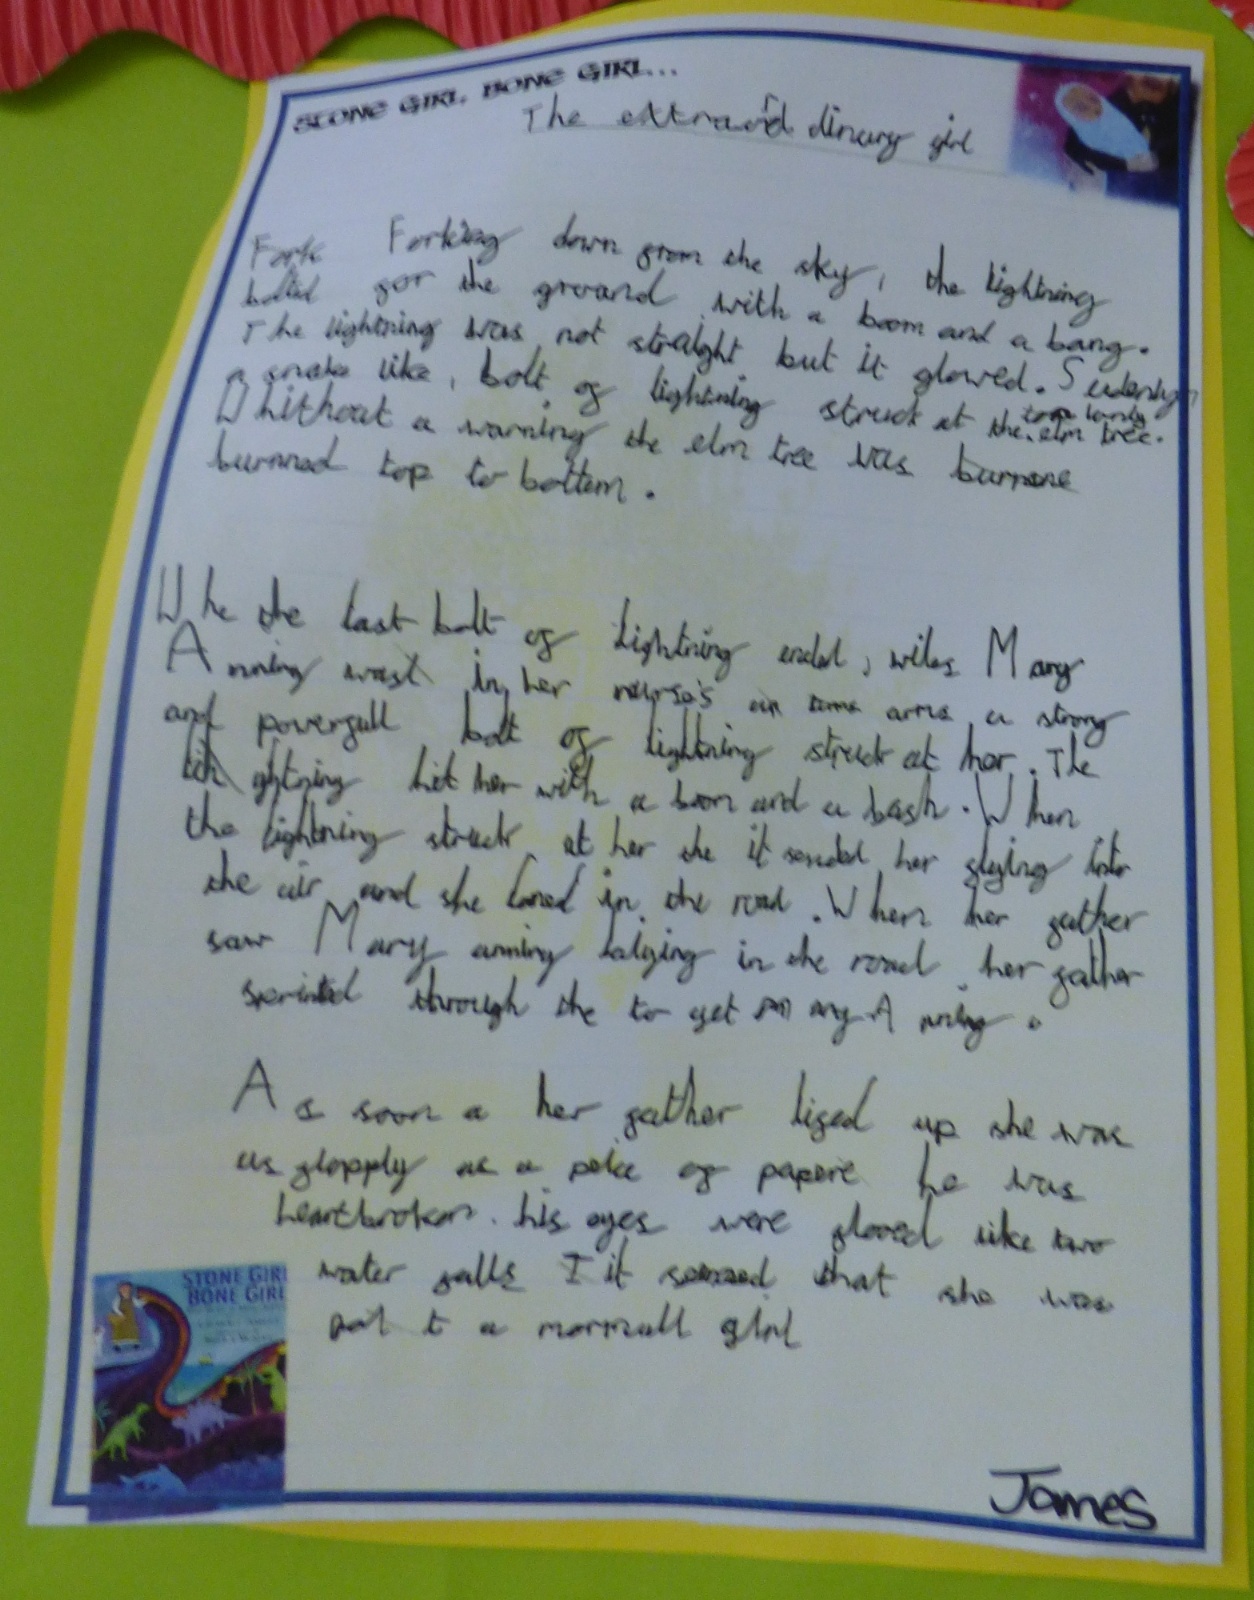 STONE GIRL, BONE GIRL...
The extraord dinary girl
Fork Forking down from the sky, the lightning
bolted for the ground with a boom and a bang.
The lightning was not straight but it glowed. Sudenly
a snake like, bolt of lightning struck at the elm tree.
Whithout a warning the elm tree was burnone
burnned top to bottem.
Whe the last bolt of lightning ended, wiles Mary
Anning wast in her nurse's arms, a strong
and powerfull bolt of lightning struck at her. The
lightning hit her with a boom and a bash. When
the lightning struck at her she it sended her flying into
the air and she laned in the road. When her father
saw Mary anning in the road her father
sprinted through the to get Mary Anning.
As soon a her father lifed up she was
as flopply as a peice of papere he was
heartbroken. his eyes were flooed like two
water falls I it seemed that she was
not t a normall girl
STONE GIRL
BONE GIRL
James